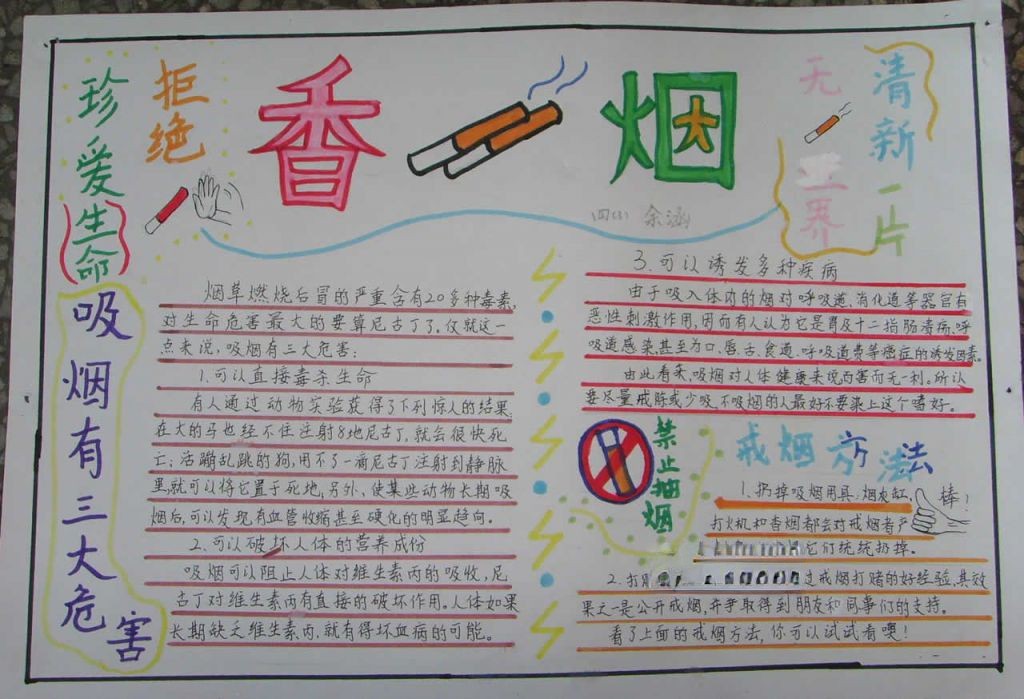 珍爱生命
拒绝
香烟
无
清新一片
界
四(1) 余涵
吸烟有三大危害
烟草燃烧后冒的严重含有20多种毒素,
对生命危害最大的要算尼古丁了。仅就这一
点来说,吸烟有三大危害:
1.可以直接毒杀生命
有人通过动物实验获得了下列惊人的结果,
在大的马也经不住注射8地尼古丁,就会很快死
亡;活蹦乱跳的狗,用不了一滴尼古丁注射到静脉
里就可以将它置于死地,另外,使某些动物长期吸
烟后,可以发现有血管收缩甚至硬化的明显趋向。
2.可以破坏人体的营养成份
吸烟可以阻止人体对维生素丙的吸收,尼
古丁对维生素丙有直接的破坏作用。人体如果
长期缺乏维生素丙,就有得坏血病的可能。
3.可以诱发多种疾病
由于吸入体内的烟对呼吸道、消化道等器官有
恶性刺激作用,因而有人认为它是胃及十二指肠溃疡、呼
吸道感染甚至为口、唇、舌、食道、呼吸道费等癌症的诱发因素。
由此看来,吸烟对人体健康来说而害而无一利。所以
要尽量戒除或少吸,不吸烟的人最好不要染上这个嗜好。
禁止抽烟
戒烟方法
1.扔掉吸烟用具:烟灰缸,
棒!
打火机和香烟都会对戒烟者产
它们统统扔掉。
2.
过戒烟打赌的好经验,其效
果之一是公开戒烟,并争取得到朋友和同事们的支持。
看了上面的戒烟方法,你可以试试看噢!